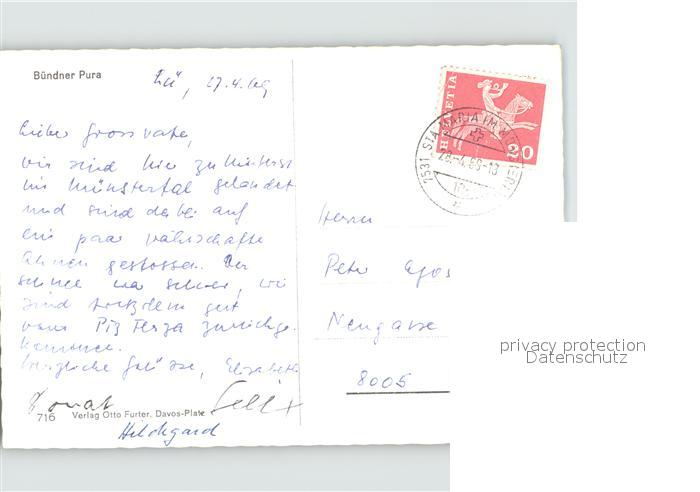 Bündner Pura
Lü, 27.4.69
Lieber Grossvater,
wir sind hier zuhinterst
im Münstertal gelandet
und sind dabei auf
ein paar währschafte
Ahnen gestossen. Der
Schnee war schwer, wir
sind trotzdem gut
vom Piz Terza zurückge-
kommen.
Herzliche Grüsse, Elisabeth
Donat
716 Verlag Otto Furter, Davos-Platz
Hildegard
HELVETIA
20
7531 STA. MARIA IM MÜNSTERTAL
28.-4.69-18
Herrn
Peter
Neugasse
8005
privacy protection
Datenschutz